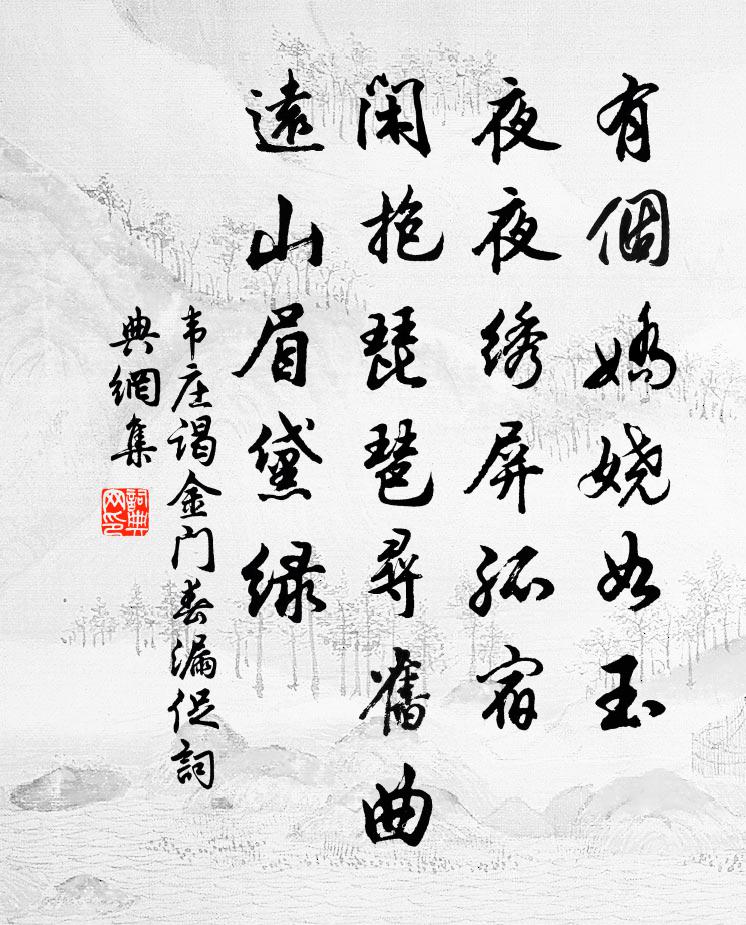 有個嬌嬈如玉
夜夜绣屏孤宿
閑抱琵琶尋舊曲
遠山眉黛绿
韦庄谒金门春漏促詞
典網集
詞典网印